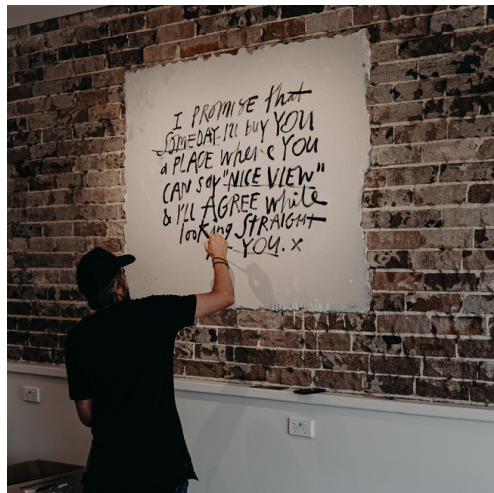 I PROMISE that
SOMEDAY I'll buy YOU
a PLACE where YOU
CAN say "NICE VIEW"
& I'll AGREE while
looking STRAIGHT
YOU. x